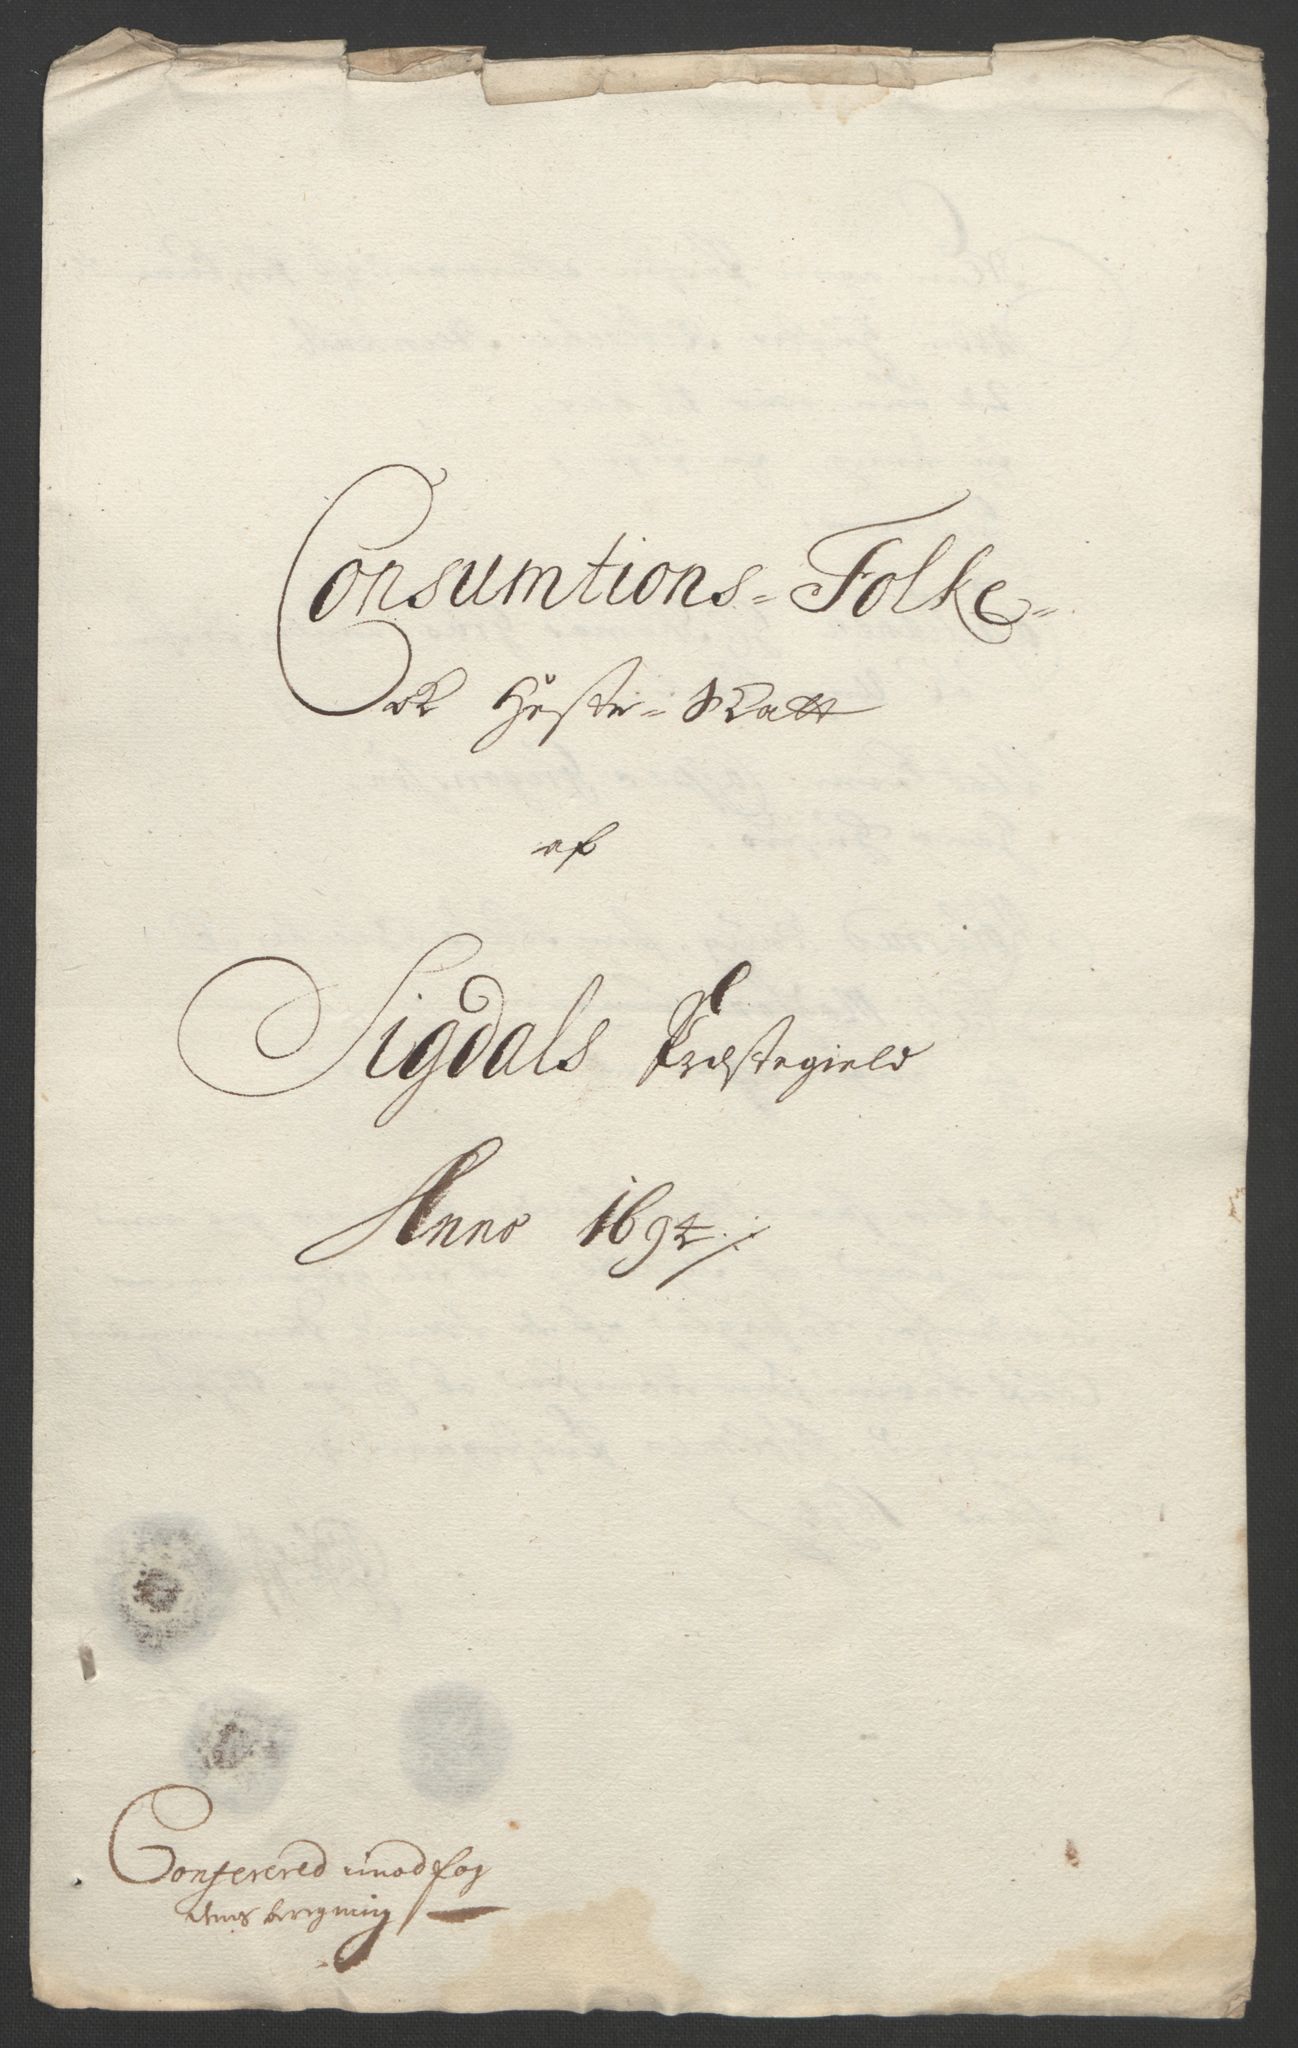 Consumtions= Folke=
ok Heste= Skatt
af
Sigdals Præstegield
Anno 1694
Conferered imod fog
dens beregning